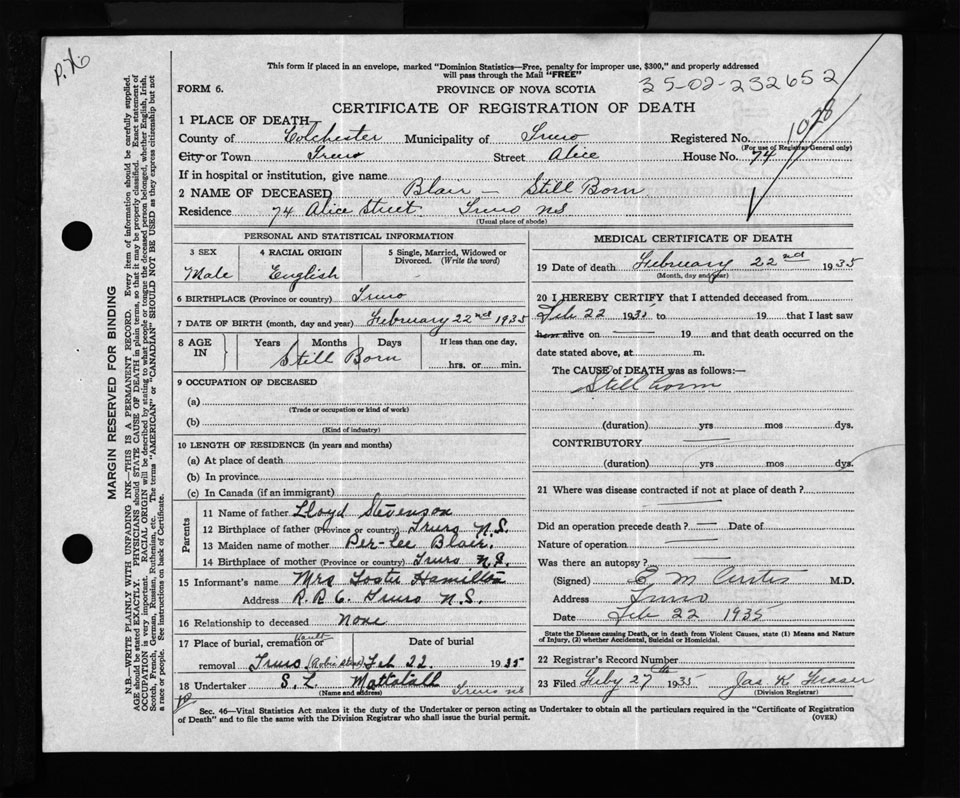 P. 76
This form if placed in an envelope, marked "Dominion Statistics—Free, penalty for improper use, $300," and properly addressed
will pass through the Mail "FREE"
FORM 6. PROVINCE OF NOVA SCOTIA 35-02-232652
CERTIFICATE OF REGISTRATION OF DEATH
1 PLACE OF DEATH 1028
County of Colchester Municipality of Truro Registered No.
(For use of Registrar General only)
City or Town Truro Street Alice House No. 74
If in hospital or institution, give name
2 NAME OF DECEASED Blair — Still Born
Residence 74 Alice Street Truro NS
(Usual place of abode)
PERSONAL AND STATISTICAL INFORMATION
3 SEX 4 RACIAL ORIGIN 5 Single, Married, Widowed or
Divorced. (Write the word)
Male English
6 BIRTHPLACE (Province or country) Truro
7 DATE OF BIRTH (month, day and year) February 22nd 1935
8 AGE IN Years Months Days If less than one day,
Still Born hrs. or min.
9 OCCUPATION OF DECEASED
(a)
(Trade or occupation or kind of work)
(b)
(Kind of industry)
10 LENGTH OF RESIDENCE (in years and months)
(a) At place of death
(b) In province
(c) In Canada (if an immigrant)
Parents
11 Name of father Lloyd Stevenson
12 Birthplace of father (Province or country) Truro N.S.
13 Maiden name of mother Per-lee Blair.
14 Birthplace of mother (Province or country) Truro N.S.
15 Informant's name Mrs Foster Hamilton
Address R.R 6. Truro N.S.
16 Relationship to deceased None
17 Place of burial, cremation Vault Date of burial
removal Truro Feb 22. 1935
18 Undertaker S. L. Mattatall Truro NS
(Name and address)
MEDICAL CERTIFICATE OF DEATH
19 Date of death February 22nd 1935
(Month, day and year)
20 I HEREBY CERTIFY that I attended deceased from
Feb 22 1935 to 19 that I last saw
h alive on 19 and that death occurred on the
date stated above, at m.
The CAUSE of DEATH was as follows:—
Still born
(duration) yrs mos dys.
CONTRIBUTORY
(duration) yrs mos dys.
21 Where was disease contracted if not at place of death?
Did an operation precede death? — Date of
Nature of operation
Was there an autopsy?
(Signed) E M Curtis M.D.
Address Truro
Date Feb 22 1935
State the Disease causing Death, or in death from Violent Causes, state (1) Means and Nature
of Injury, (2) whether Accidental, Suicidal or Homicidal.
22 Registrar's Record Number
23 Filed Feby 27th 1935 Jas K Fraser
(Division Registrar)
Sec. 46—Vital Statistics Act makes it the duty of the Undertaker or person acting as Undertaker to obtain all the particulars required in the "Certificate of Registration
of Death" and to file the same with the Division Registrar who shall issue the burial permit. (OVER)
MARGIN RESERVED FOR BINDING
N.B.—WRITE PLAINLY WITH UNFADING INK—THIS IS A PERMANENT RECORD. Every item of information should be carefully supplied.
AGE should be stated EXACTLY. PHYSICIANS should STATE CAUSE OF DEATH in plain terms, so that it may be properly classified. Exact statement of
OCCUPATION is very important. RACIAL ORIGIN will be described by stating to what people or tongue the deceased person belonged, whether English, Irish,
Scotch, French, German, Russian, Ruthenian, etc. The terms "AMERICAN" or "CANADIAN" SHOULD NOT BE USED as they express citizenship but not
a race or people. See instructions on back of Certificate.